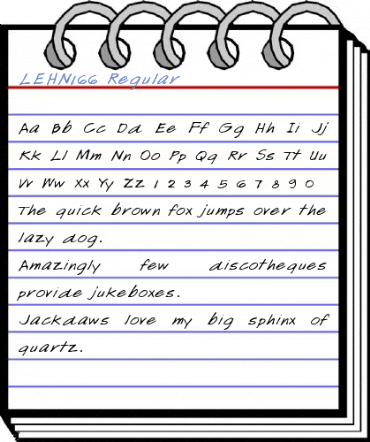 LEHN166 Regular
Aa Bb Cc Dd Ee Ff Gg Hh Ii Jj
Kk Ll Mm Nn Oo Pp Qq Rr Ss Tt Uu
Vv Ww Xx Yy Zz 1 2 3 4 5 6 7 8 9 0
The quick brown fox jumps over the
lazy dog.
Amazingly few discotheques
provide jukeboxes.
Jackdaws love my big sphinx of
quartz.